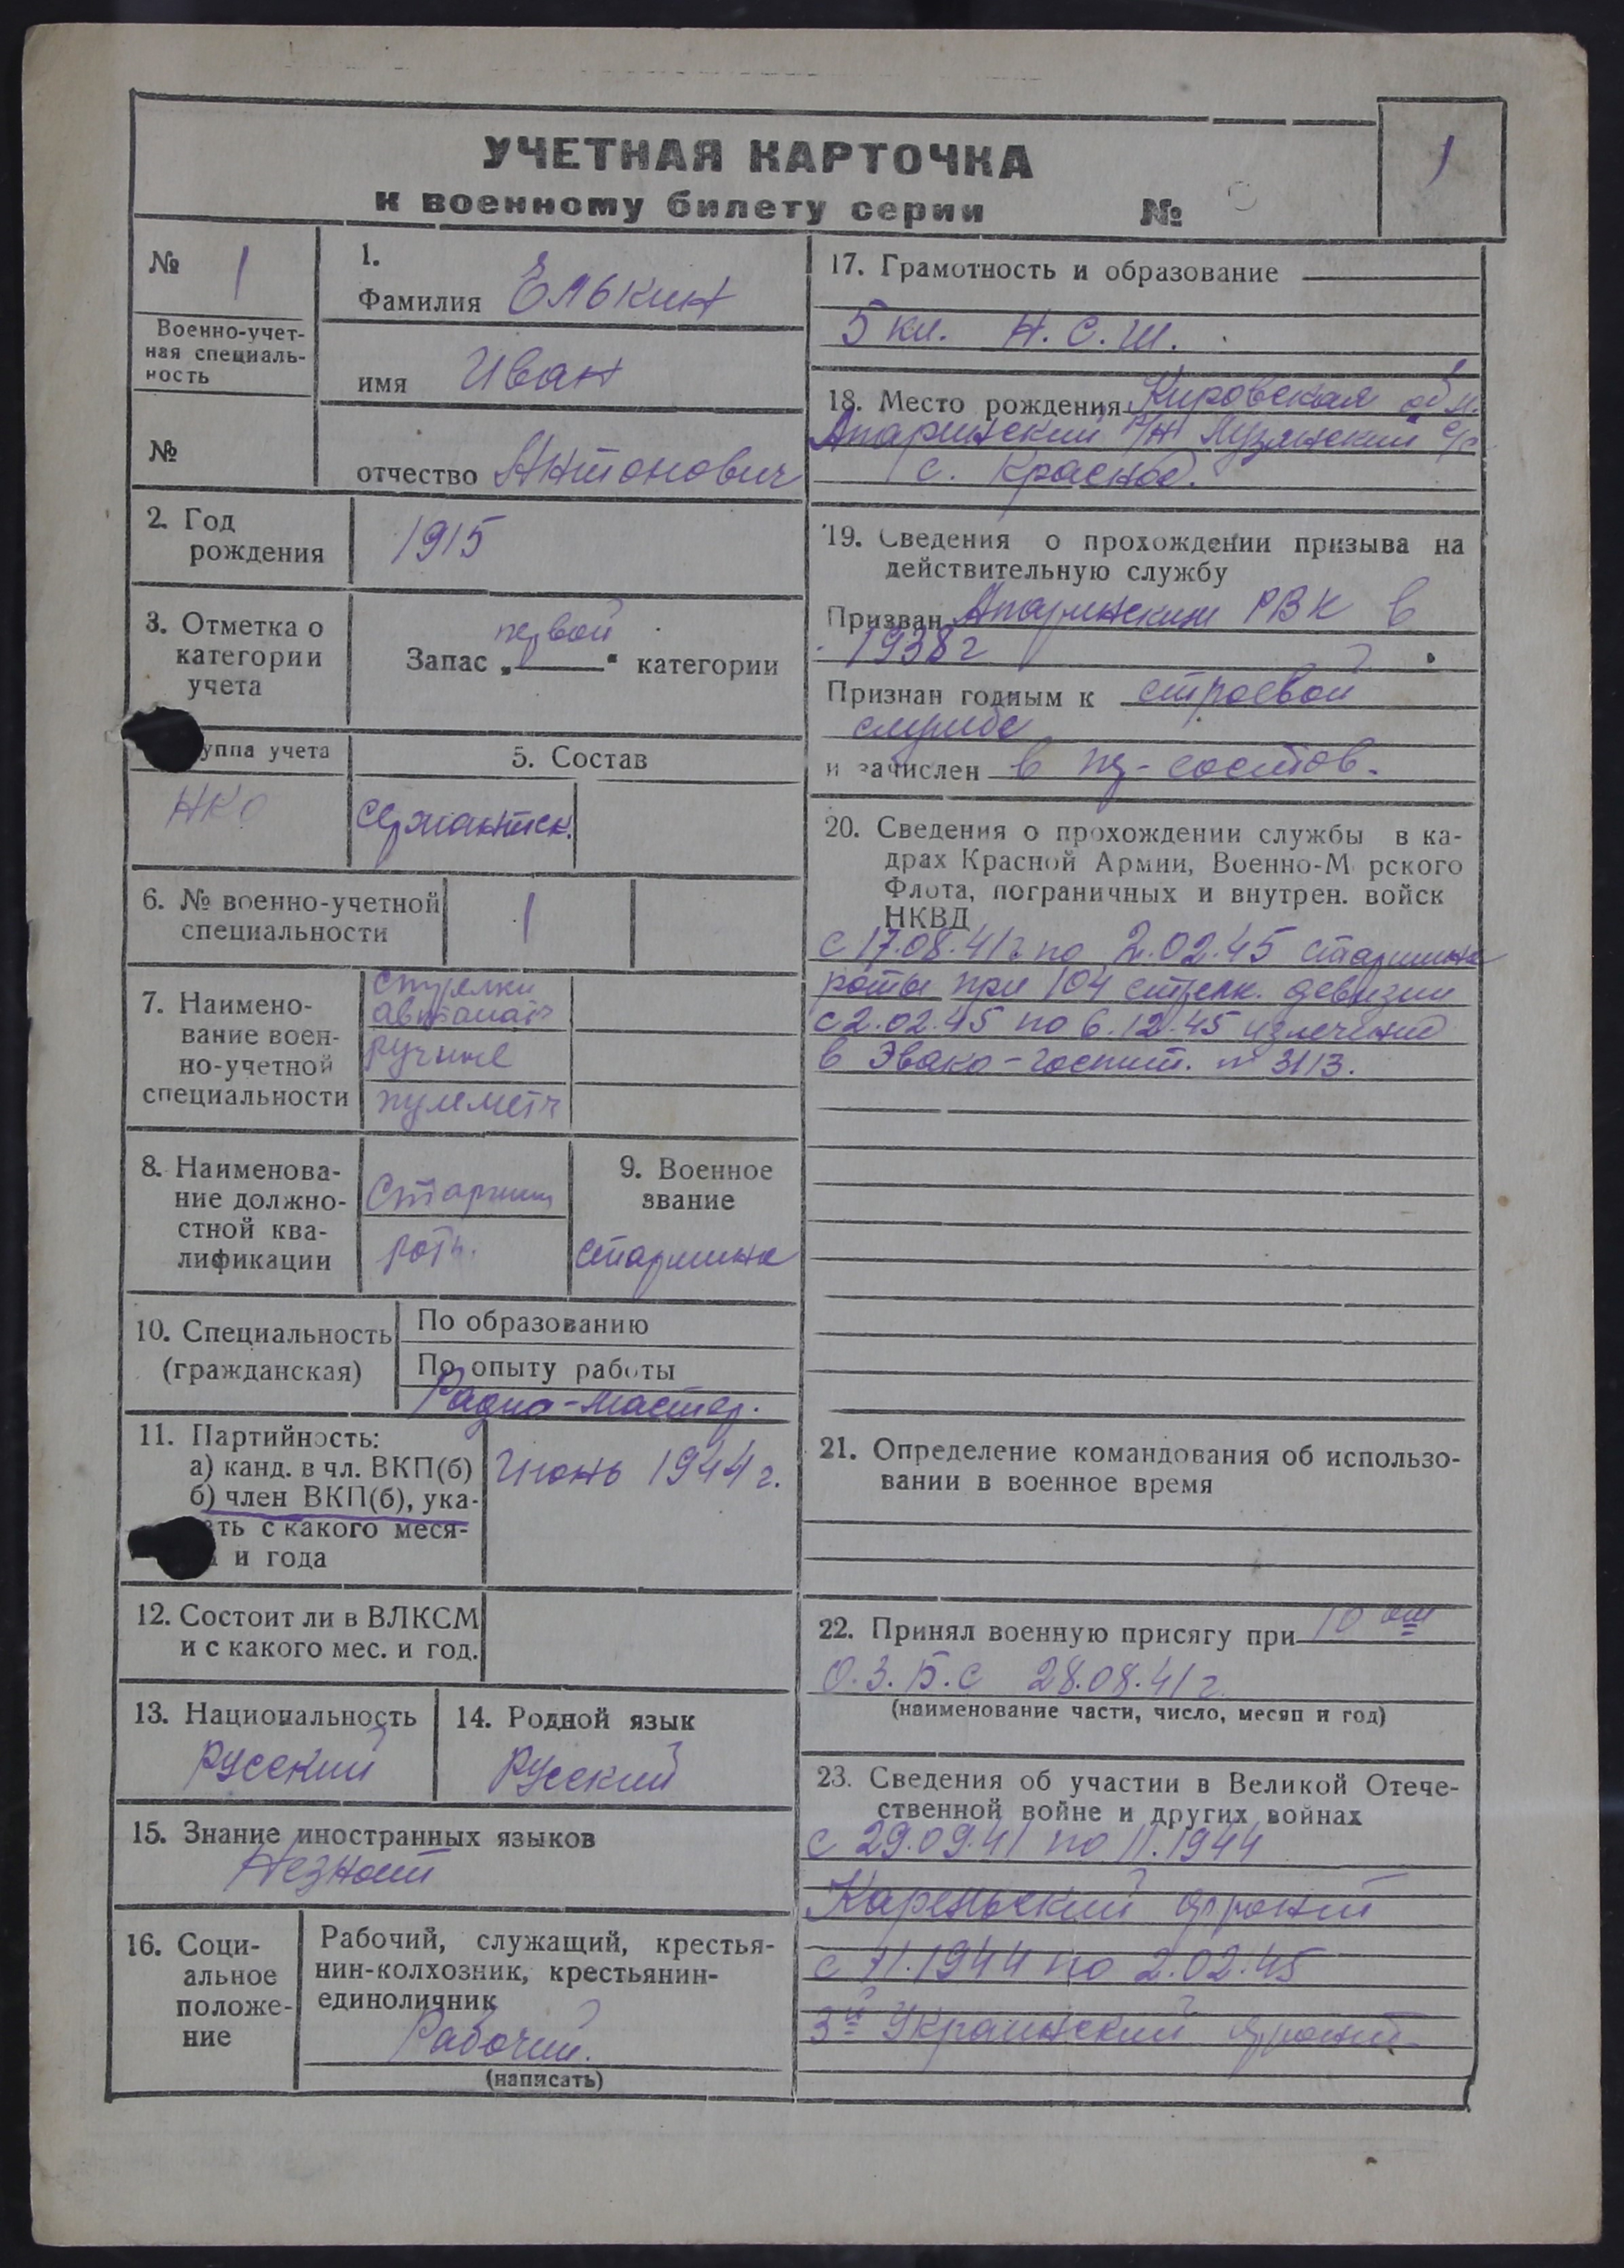 УЧЕТНАЯ КАРТОЧКА
к военному билету серии №
1
№ 1
Военно-учет-
ная специаль-
ность
№
1.
Фамилия Елькин
имя Иван
отчество Антонович
2. Год
рождения
1915
3. Отметка о
категории
учета
Запас „первой“ категории
уппа учета
НКО
5. Состав
сержантск.
6. № военно-учетной
специальности
1
7. Наимено-
вание воен-
но-учетной
специальности
Стрелки
автомат
ручные
пулемет
8. Наименова-
ние должно-
стной ква-
лификации
Старшин
роты.
9. Военное
звание
старшина
10. Специальность
(гражданская)
По образованию
По опыту работы
Радио-мастер.
11. Партийность:
а) канд. в чл. ВКП(б)
б) член ВКП(б), ука-
ать с какого меся-
и года
Июнь 1944 г.
12. Состоит ли в ВЛКСМ
и с какого мес. и год.
13. Национальность
русский
14. Родной язык
русский
15. Знание иностранных языков
Незнает
16. Соци-
альное
положе-
ние
Рабочий, служащий, крестья-
нин-колхозник, крестьянин-
единоличник
Рабочий.
(написать)
17. Грамотность и образование
5 кл. Н.С.Ш.
18. Место рождения Кировская обл.
Апаринский р/н Лузянский с/с
с. Красное.
19. Сведения о прохождении призыва на
действительную службу
Призван Апаринским РВК в
1938 г
Признан годным к строевой
службе
и зачислен в ря-состав.
20. Сведения о прохождении службы в ка-
драх Красной Армии, Военно-М рского
Флота, пограничных и внутрен. войск
НКВД
с 17.08.41 г. по 2.02.45 старшина
роты при 104 стрелк. девизии
с 2.02.45 по 6.12.45 излечение
в Эвако-госпит. № 3113.
21. Определение командования об использо-
вании в военное время
22. Принял военную присягу при 10 ом
О.З.Б.С 28.08.41 г.
(наименование части, число, месяц и год)
23. Сведения об участии в Великой Отече-
ственной войне и других войнах
с 29.09.41 по 11.1944
Карельский фронт
с 11.1944 по 2.02.45
3й Украинский фронт